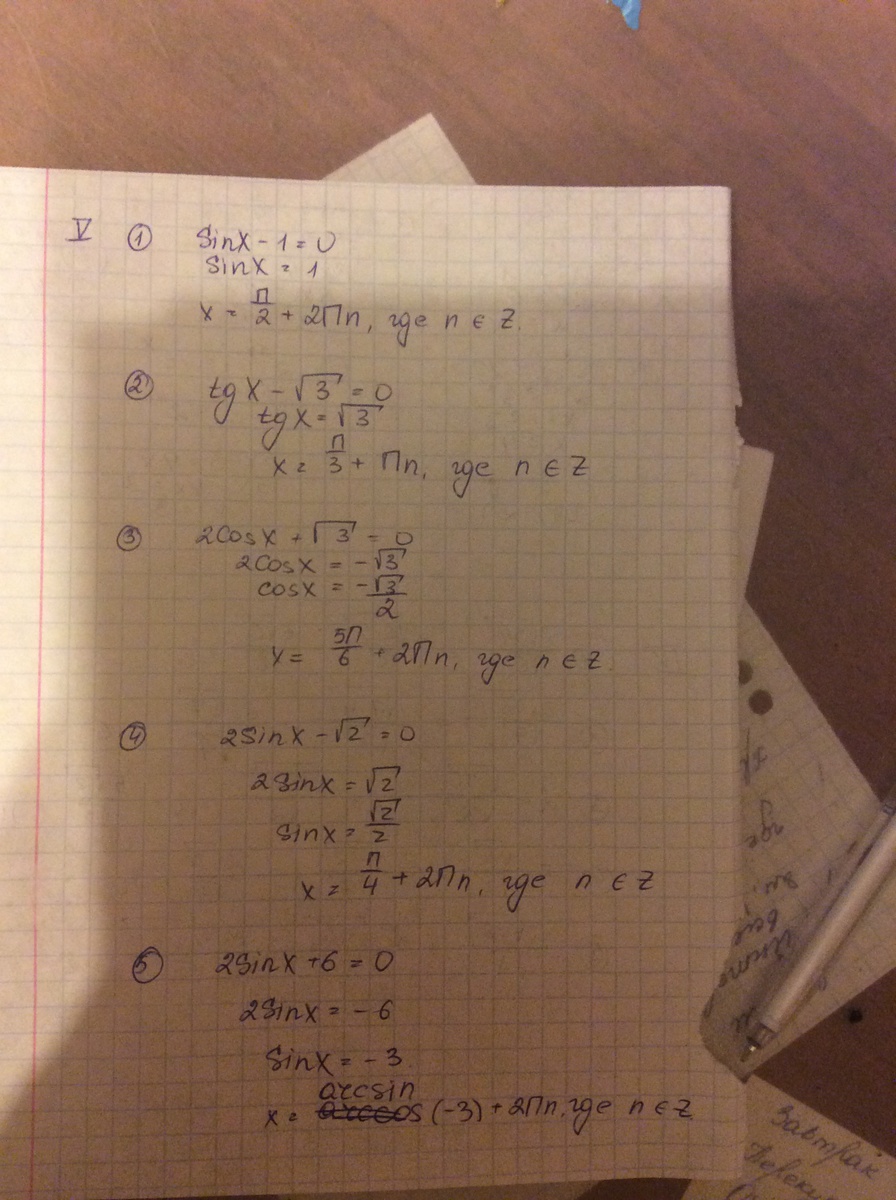 V ① sinx - 1 = 0
sinx = 1
x = П/2 + 2Пn, где n ∈ Z.
② tgx - √3 = 0
tgx = √3
x = П/3 + Пn, где n ∈ Z
③ 2cosx + √3 = 0
2cosx = -√3
cosx = -√3/2
x = 5П/6 + 2Пn, где n ∈ Z
④ 2sinx - √2 = 0
2sinx = √2
sinx = √2/2
x = П/4 + 2Пn, где n ∈ Z
⑤ 2sinx + 6 = 0
2sinx = -6
sinx = -3.
arcsin
x = arccos (-3) + 2Пn, где n ∈ Z
где
Завтрак